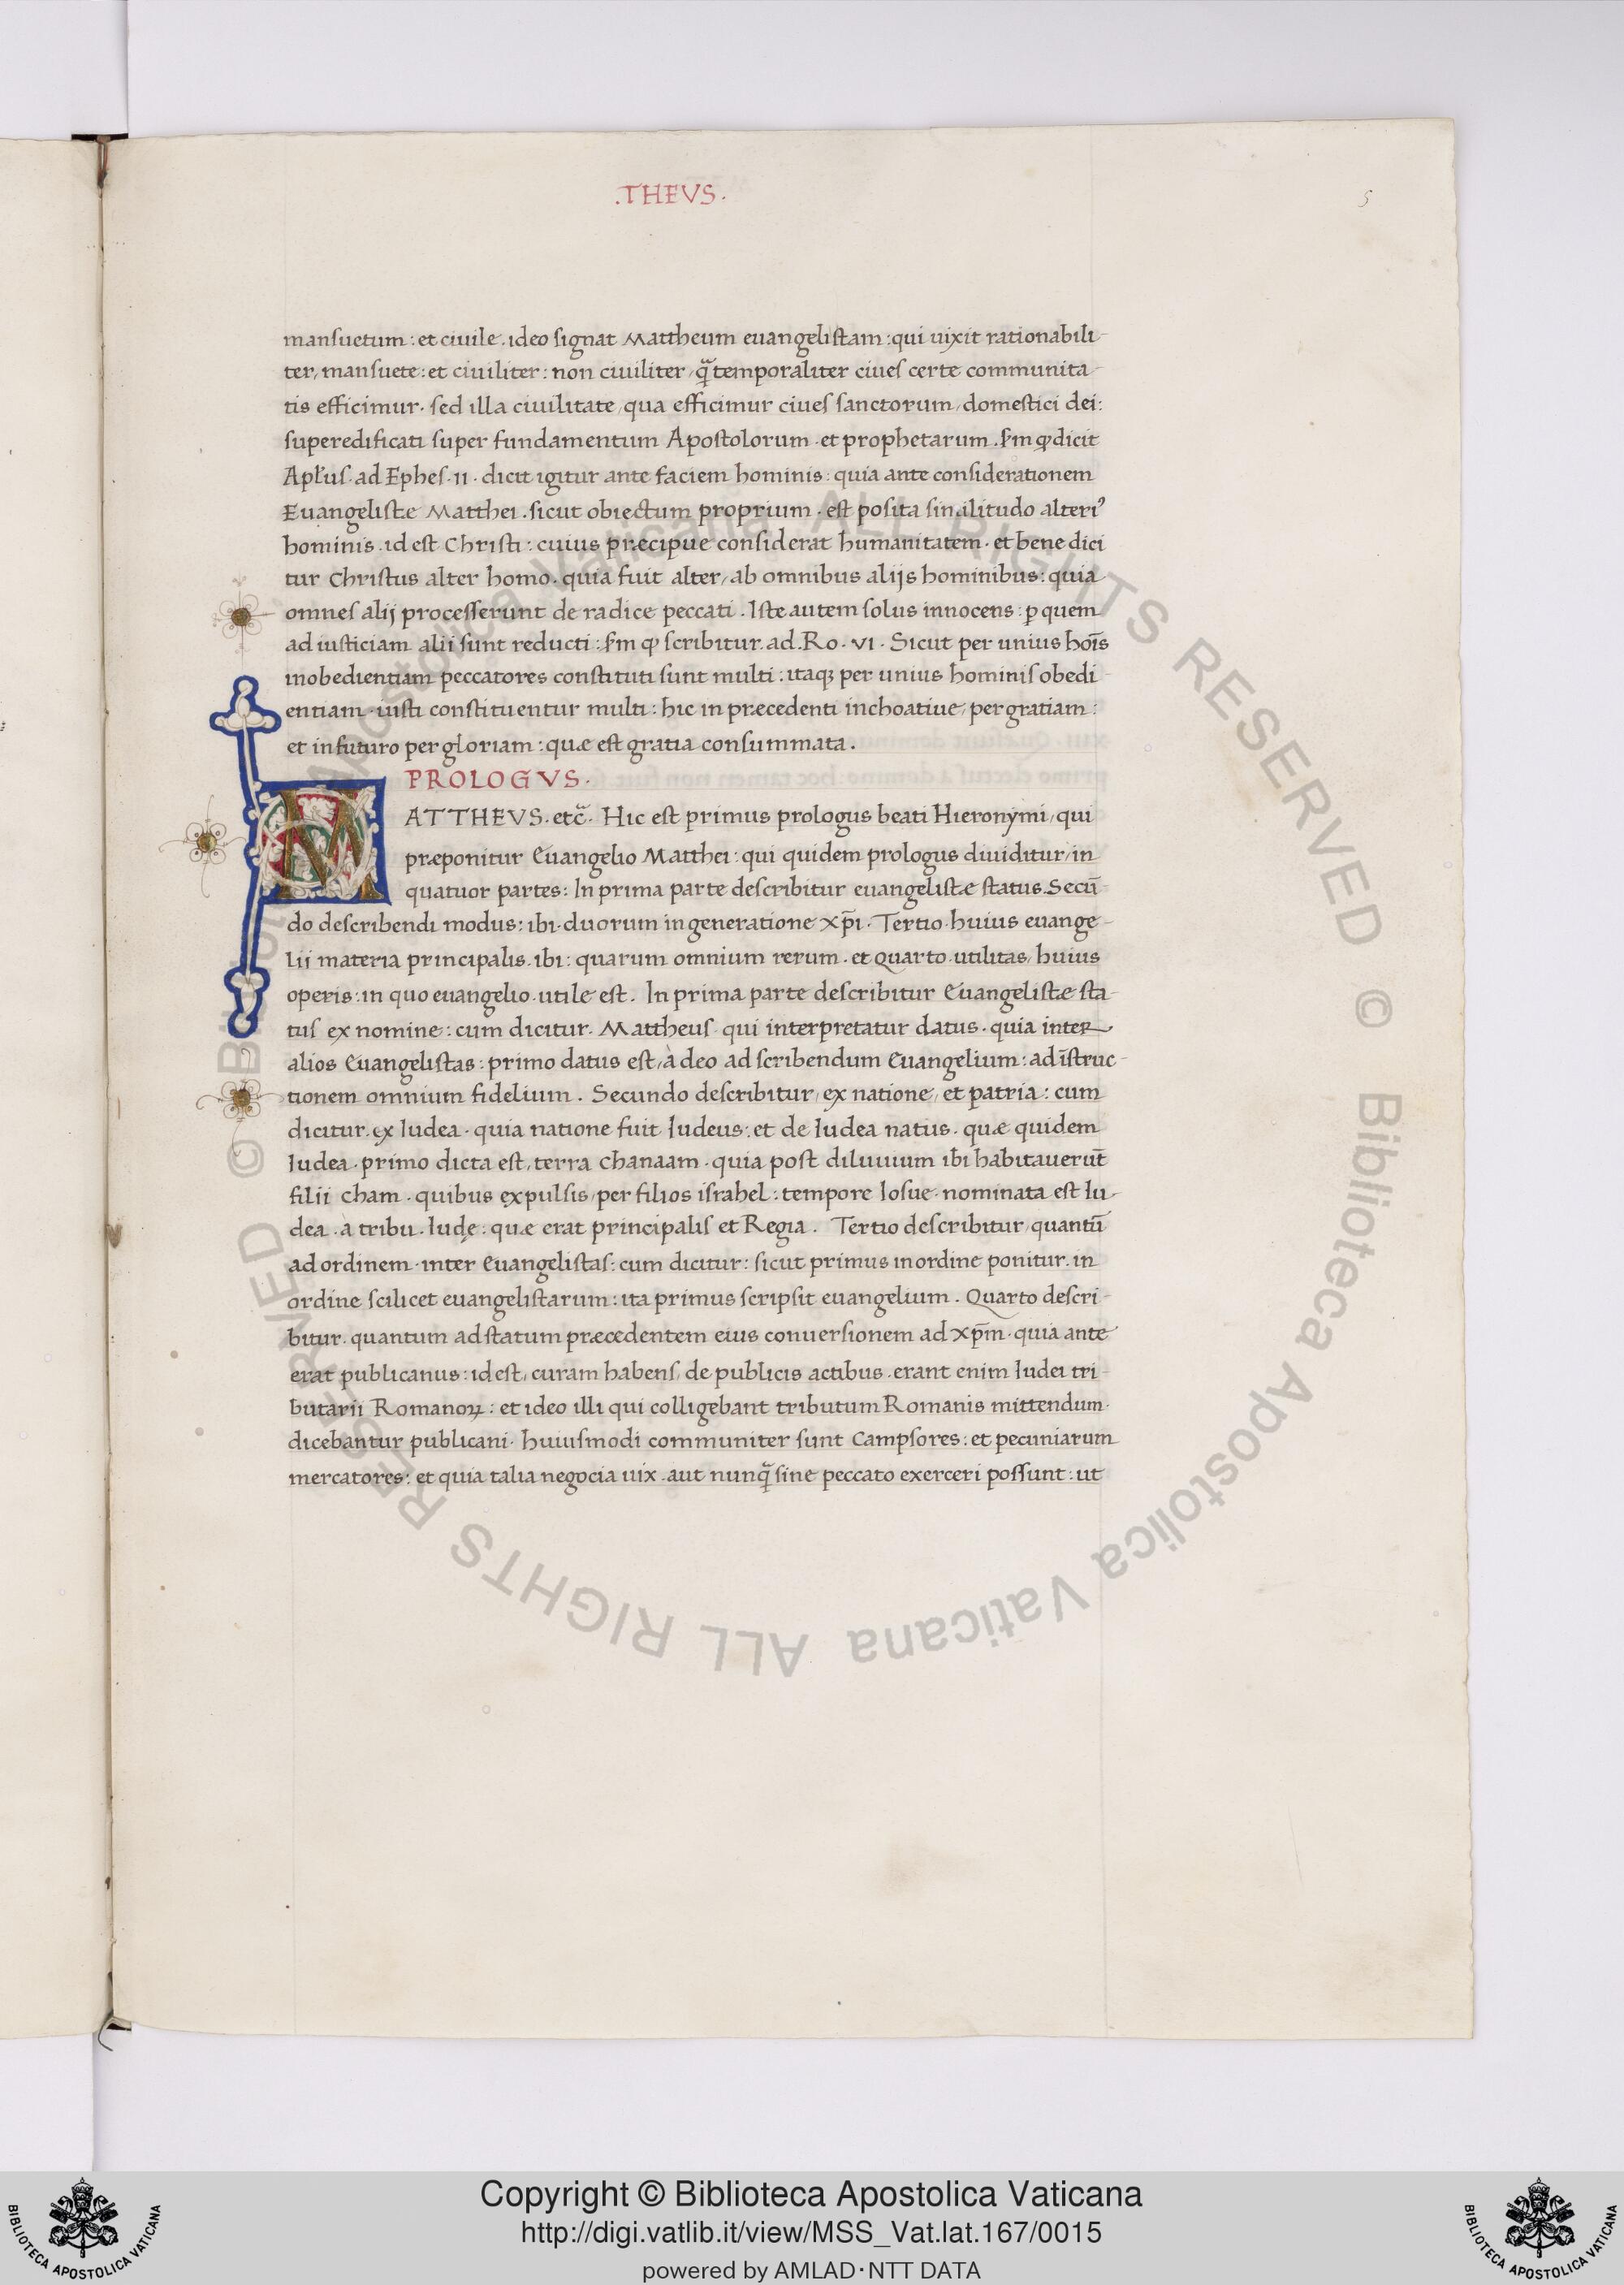 .THEVS.
5
mansuetum: et ciuile. ideo signat Mattheum euangelistam: qui uixit rationabili-
ter, mansuete: et ciuiliter: non ciuiliter, qua temporaliter ciues certe communita-
tis efficimur. sed illa ciuilitate, qua efficimur ciues sanctorum, domestici dei:
superedificati super fundamentum Apostolorum. et prophetarum. sm ꝙ dicit
Aplus. ad Ephes. II. dicit igitur ante faciem hominis: quia ante considerationem
Euangeliste Matthei. sicut obiectum proprium. est posita similitudo alteriꝰ
hominis. id est Christi: cuius præcipue considerat humanitatem. et bene dici
tur Christus alter homo. quia fuit alter, ab omnibus alijs hominibus: quia
omnes alij processerunt de radice peccati. Iste autem solus innocens: ꝑ quem
ad iusticiam alii sunt reducti: sm ꝙ scribitur. ad. Ro. VI. Sicut per unius hoīs
inobedientiam peccatores constituti sunt multi: itaqꝫ per unius hominis obedi-
entiam. iusti constituentur multi: hic in præcedenti inchoatiue, per gratiam:
et in futuro per gloriam: quæ est gratia consummata.
PROLOGVS.
MATTHEVS. etc̄. Hic est primus prologus beati Hieronymi, qui
præponitur Euangelio Matthei: qui quidem prologus diuiditur, in
quatuor partes: In prima parte describitur euangelistæ status. Secū-
do describendi modus: ibi. duorum in generatione xp̄i. Tertio. huius euange-
lii materia principalis. ibi: quarum omnium rerum. et Quarto. utilitas, huius
operis: in quo euangelio. utile est. In prima parte describitur Euangelistæ sta-
tus ex nomine: cum dicitur. Mattheus. qui interpretatur datus. quia inter
alios Euangelistas: primo datus est, à deo ad scribendum Euangelium: ad īstruc-
tionem omnium fidelium. Secundo describitur, ex natione, et patria: cum
dicitur. ex Iudea. quia natione fuit Iudeus: et de Iudea natus. quæ quidem
Iudea. primo dicta est, terra chanaam. quia post diluuium ibi habitauerūt
filii cham. quibus expulsis, per filios israhel: tempore Iosue. nominata est Iu-
dea. à tribu. Iudę: quæ erat principalis et Regia. Tertio describitur, quantū
ad ordinem. inter Euangelistas: cum dicitur: sicut primus in ordine ponitur. in
ordine scilicet euangelistarum: ita primus scripsit euangelium. Quarto descri-
bitur. quantum ad statum præcedentem eius conuersionem ad xp̄m. quia ante
erat publicanus: id est, curam habens, de publicis actibus. erant enim Iudei tri-
butarii Romanoꝝ: et ideo illi qui colligebant tributum Romanis mittendum.
dicebantur publicani. huiusmodi communiter sunt Campsores: et pecuniarum
mercatores: et quia talia negocia uix. aut nunq̄ sine peccato exerceri possunt: ut
© Biblioteca Apostolica Vaticana ALL RIGHTS RESERVED © Biblioteca Apostolica Vaticana ALL RIGHTS RESERVED
Copyright © Biblioteca Apostolica Vaticana
http://digi.vatlib.it/view/MSS_Vat.lat.167/0015
powered by AMLAD·NTT DATA
BIBLIOTECA APOSTOLICA VATICANA
BIBLIOTECA APOSTOLICA VATICANA